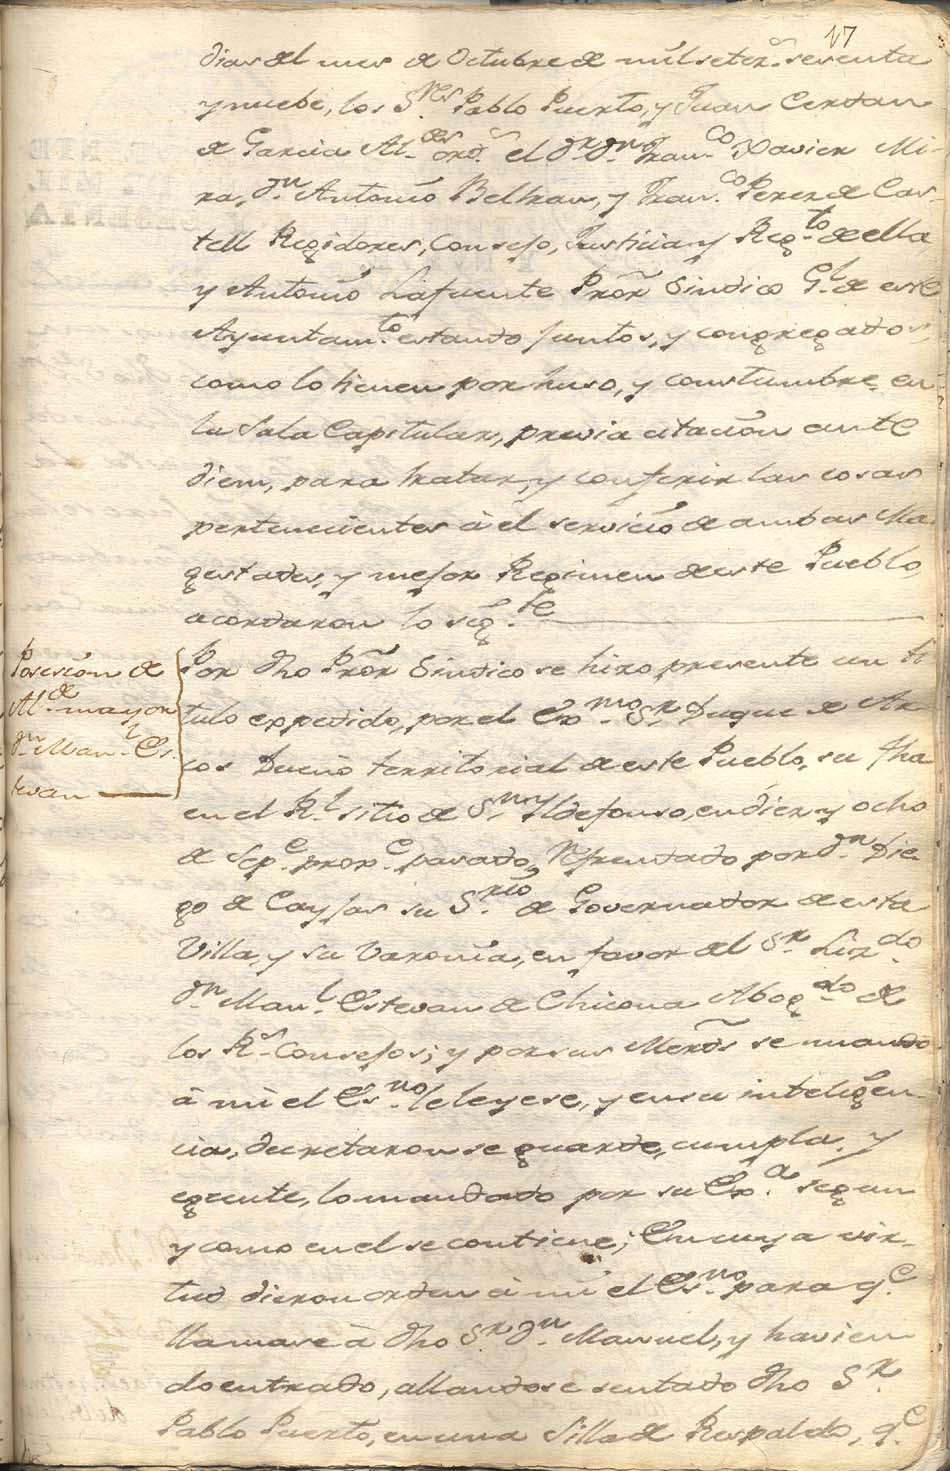 17
dias del mes de Octubre de mil setez.s sesenta
y nuebe, los S.res Pablo Puerto, y Juan Cerdan
de Garcia Al.des ord.s el Dr. Dn. Fran.co Xavier Mi-
ra, Dn. Antonio Beltran, y Fran.co Perez de Cas-
tell Regidores, Consejo, Justicia y Reg.to de ella,
y Antonio Lafuente Pror Sindico G.l de este
Ayuntam.to estando juntos, y congregados,
como lo tienen por huso, y constumbre en
la Sala Capitular, previa citacion ante
diem, para tratar, y conferir las cosas
pertenecientes à el servicio de ambas Ma-
gestades, y mejor Regimen de este Pueblo,
acordaron lo sig.te
Posesion de
Al.de mayor
Dn. Man.l Es-
tevan
Por dho Pror Sindico se hizo presente un ti
tulo expedido, por el Exmo. Sr. Duque de Ar-
cos Dueño territorial de este Pueblo, su fha
en el R.l sitio de Sn. Yldefonso, en diez y ocho
de Sep.e prox.e pasado, Refrendado por Dn. Die-
go de Caysas su S.rio de Governador de esta
Villa, y su Varonia, en favor del Sr. Liz.do
Dn. Man.l Estevan de Chicona Abog.do de
los R.s Consejos; y por sus Merds se mando
à mi el Es.no le leyese, y en su inteligen-
cia, decretaron se guarde, cumpla, y
egecute, lo mandado por su Ex.a segun
y como en el se contiene; En cuya vir-
tud dieron orden à mi el Es.no para q.e
llamase à dho Sr. Dn. Manuel, y havien
do entrado, allandose sentado dho Sr.
Pablo Puerto, en una Silla de Respaldo, q.e